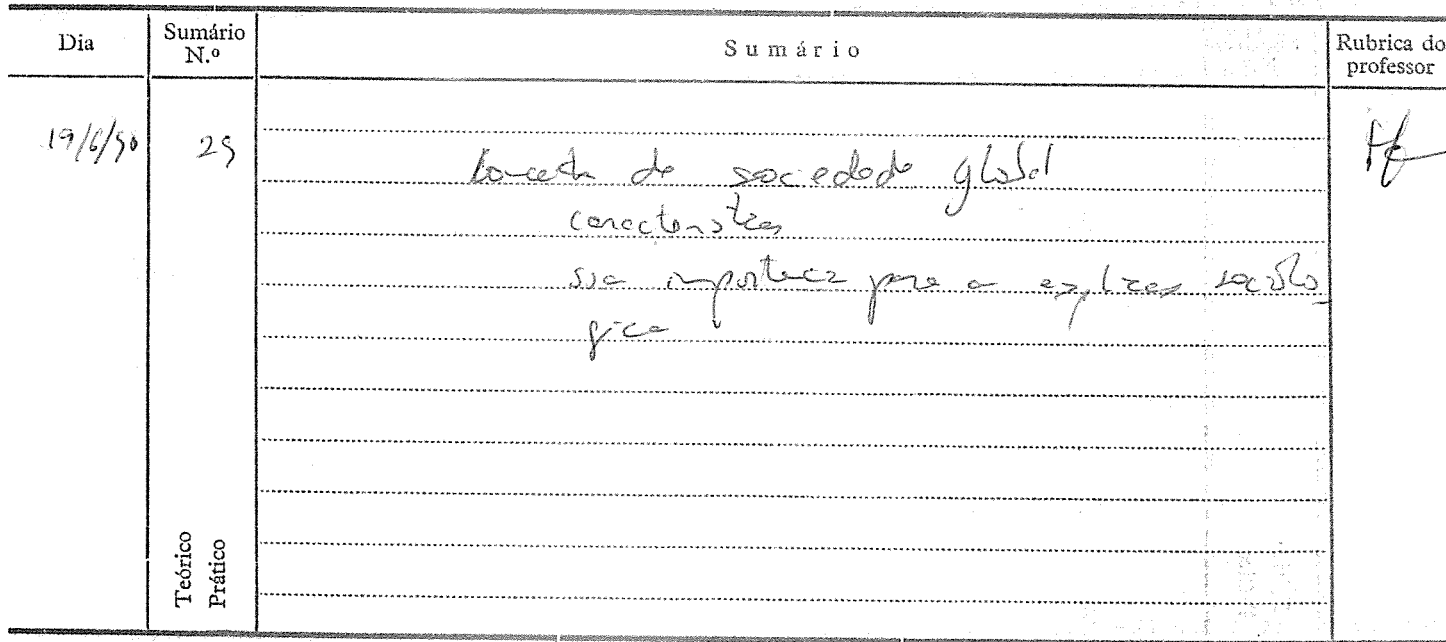 Dia
Sumário N.º
Sumário
Rubrica do professor
19/6/90
25
Conceito de sociedade global
Características
sua importância para a explicação socioló-
gica
Teórico
Prático